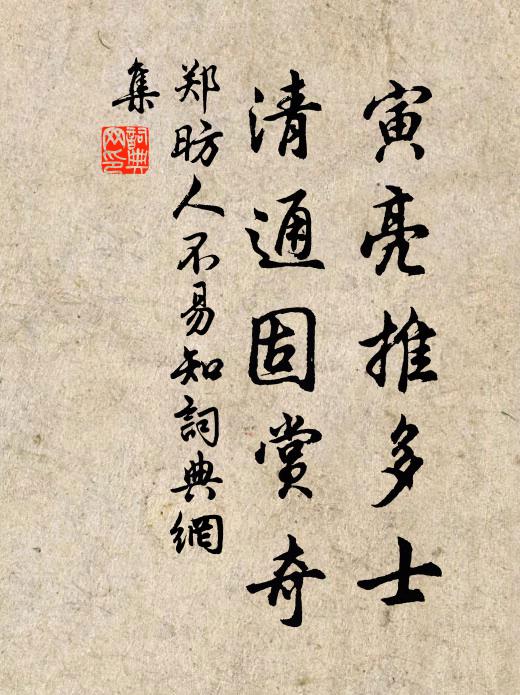 寅亮推多士
清通固赏奇
郑昉人不易知詞典網
集
詞典網印